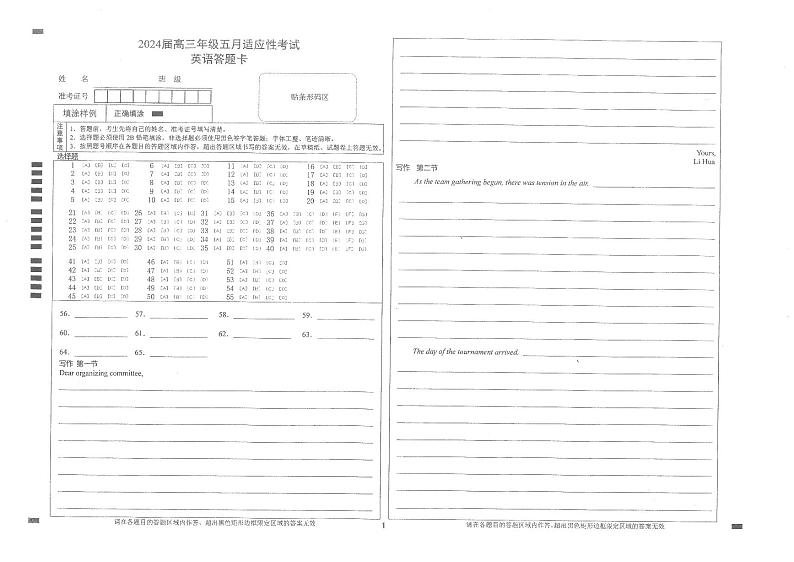 2024届高三年级五月适应性考试
英语答题卡
姓 名 班 级
准考证号
贴条形码区
填涂样例 正确填涂
注意事项
1、答题前，考生先将自己的姓名、准考证号填写清楚。
2、选择题必须使用2B铅笔填涂，非选择题必须使用黑色签字笔答题，字体工整、笔迹清晰。
3、按照题号顺序在各题目的答题区域内作答，超出答题区域书写的答案无效，在草稿纸、试题卷上答题无效。
选择题
1 [A] [B] [C] [D] 6 [A] [B] [C] [D] 11 [A] [B] [C] [D] 16 [A] [B] [C] [D]
2 [A] [B] [C] [D] 7 [A] [B] [C] [D] 12 [A] [B] [C] [D] 17 [A] [B] [C] [D]
3 [A] [B] [C] [D] 8 [A] [B] [C] [D] 13 [A] [B] [C] [D] 18 [A] [B] [C] [D]
4 [A] [B] [C] [D] 9 [A] [B] [C] [D] 14 [A] [B] [C] [D] 19 [A] [B] [C] [D]
5 [A] [B] [C] [D] 10 [A] [B] [C] [D] 15 [A] [B] [C] [D] 20 [A] [B] [C] [D]
21 [A] [B] [C] [D] 26 [A] [B] [C] [D] 31 [A] [B] [C] [D] 36 [A] [B] [C] [D] [E] [F] [G]
22 [A] [B] [C] [D] 27 [A] [B] [C] [D] 32 [A] [B] [C] [D] 37 [A] [B] [C] [D] [E] [F] [G]
23 [A] [B] [C] [D] 28 [A] [B] [C] [D] 33 [A] [B] [C] [D] 38 [A] [B] [C] [D] [E] [F] [G]
24 [A] [B] [C] [D] 29 [A] [B] [C] [D] 34 [A] [B] [C] [D] 39 [A] [B] [C] [D] [E] [F] [G]
25 [A] [B] [C] [D] 30 [A] [B] [C] [D] 35 [A] [B] [C] [D] 40 [A] [B] [C] [D] [E] [F] [G]
41 [A] [B] [C] [D] 46 [A] [B] [C] [D] 51 [A] [B] [C] [D]
42 [A] [B] [C] [D] 47 [A] [B] [C] [D] 52 [A] [B] [C] [D]
43 [A] [B] [C] [D] 48 [A] [B] [C] [D] 53 [A] [B] [C] [D]
44 [A] [B] [C] [D] 49 [A] [B] [C] [D] 54 [A] [B] [C] [D]
45 [A] [B] [C] [D] 50 [A] [B] [C] [D] 55 [A] [B] [C] [D]
56. 57. 58. 59.
60. 61. 62. 63.
64. 65.
写作 第一节
Dear organizing committee,
请在各题目的答题区域内作答，超出黑色矩形边框限定区域的答案无效
1
Yours,
Li Hua
写作 第二节
As the team gathering begun, there was tension in the air.
The day of the tournament arrived.
请在各题目的答题区域内作答，超出黑色矩形边框限定区域的答案无效